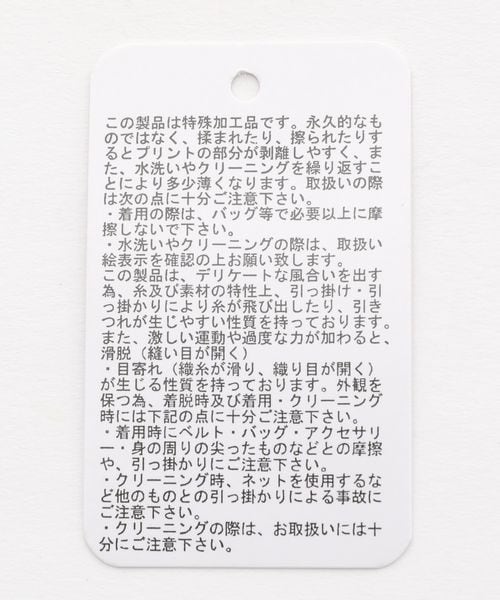 この製品は特殊加工品です。永久的なも
のではなく、揉まれたり、擦られたりす
るとプリントの部分が剥離しやすく、ま
た、水洗いやクリーニングを繰り返すこ
とにより多少薄くなります。取扱いの際
は次の点に十分ご注意下さい。
・着用の際は、バッグ等で必要以上に摩
擦しないで下さい。
・水洗いやクリーニングの際は、取扱い
絵表示を確認の上お願い致します。
この製品は、デリケートな風合いを出す
為、糸及び素材の特性上、引っ掛け・引
っ掛かりにより糸が飛び出したり、引き
つれが生じやすい性質を持っております。
また、激しい運動や過度な力が加わると、
滑脱（縫い目が開く）
・目寄れ（織糸が滑り、織り目が開く）
が生じる性質を持っております。外観を
保つ為、着脱時及び着用・クリーニング
時には下記の点に十分ご注意下さい。
・着用時にベルト・バッグ・アクセサリ
ー・身の周りの尖ったものなどとの摩擦
や、引っ掛かりにご注意下さい。
・クリーニング時、ネットを使用するな
ど他のものとの引っ掛かりによる事故に
ご注意下さい。
・クリーニングの際は、お取扱いには十
分にご注意下さい。